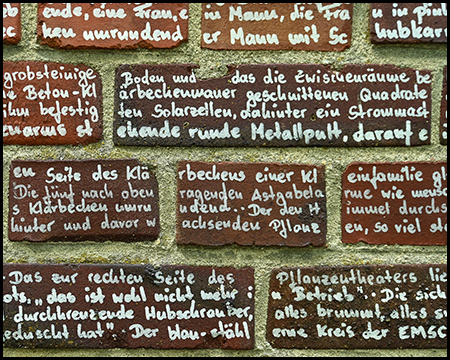 eine Frau, e
en umrundend
in Mann, die Fra
er Mann mit Sc
n in Pin
hubkarr
grobsteinige
e Beton-Kl
ihm befestig
enarms st
Boden und das die Zwischenräume be
ärbeckenmauer geschnittenen Quadrate
ten Solarzellen, dahinter ein Strommast
ehende runde Metallpult, darauf e
en Seite des Klä
Die fünf nach oben
s Klärbecken umru
hinter und davor w
rbeckens einer Kl
ragenden Astgabeln
undend. Der den H
achsenden Pflanz
einfamilie gl
rme wie mensc
immel durchs
en, so viel st
Das zur rechten Seite des
ots, „das ist wohl nicht mehr i
durchkreuzende Hubschrauber,
eduscht hat". Der blau-stähl
Pflanzentheaters lie
n Betrieb". Die sich
alles brummt, alles s
erne Kreis der EMSC